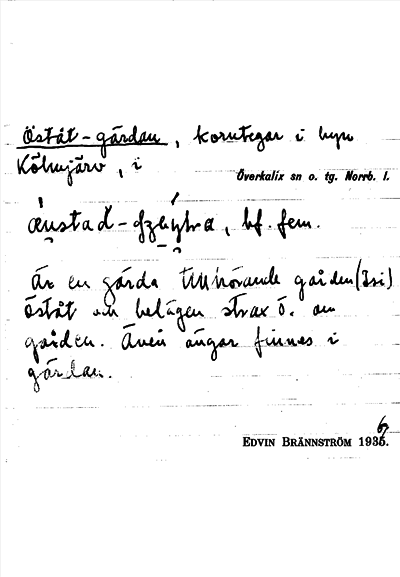 Öståt-gärdan, korntegar i byn
Kölmjärv, i
Överkalix sn o. tg. Norrb. l.
bf. fem.
Är en gärda tillhörande gården (Isi)
Öståt och belägen strax ö. om
gården. Även ängar finnes i
gärdan.
EDVIN BRÄNNSTRÖM 1936.